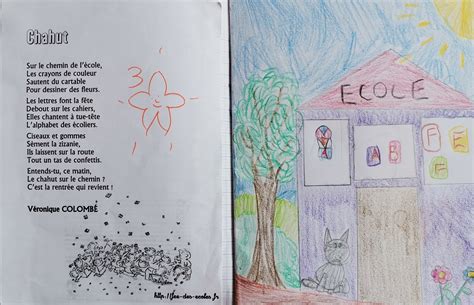 Chahut
Sur le chemin de l'école,
Les crayons de couleur
Sautent du cartable
Pour dessiner des fleurs.
Les lettres font la fête
Debout sur les cahiers,
Elles chantent à tue-tête
L'alphabet des écoliers.
Ciseaux et gommes
Sèment la zizanie,
Ils laissent sur la route
Tout un tas de confettis.
Entends-tu, ce matin,
Le chahut sur le chemin ?
C'est la rentrée qui revient !
Véronique COLOMBÉ
3
http://fee-des-ecoles.fr
ECOLE
A B
F E
F